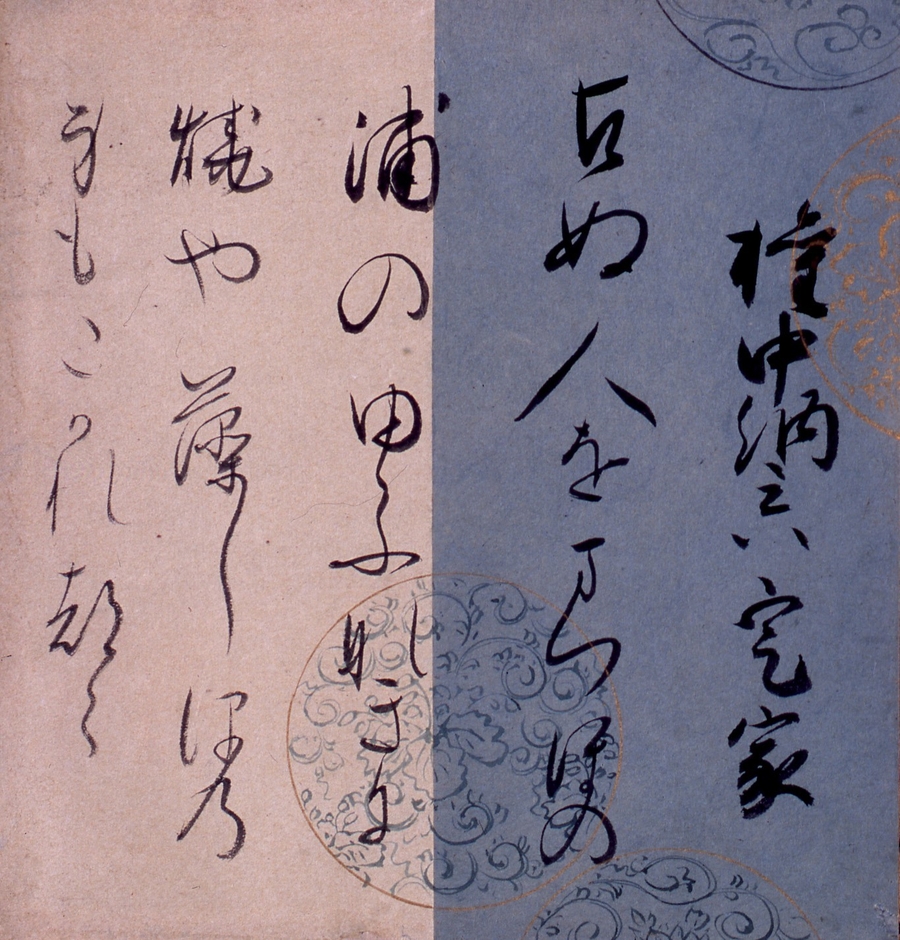 権中納言定家
古ぬ人をまつほの
浦の由ふなきに
焼や藻しほ乃
身もこかれ都ゝ